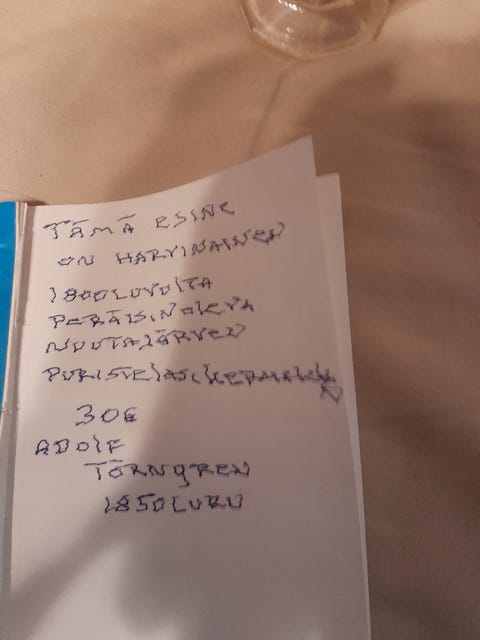 TÄMÄ ESINE
ON HARVINAINEN
1800LUVULTA
PERÄISINOLEVA
NUUTAJÄRVEN
PURISTELASIKERMAKKO
30€
ADOLF
TÖRNGREN
1850LUKU